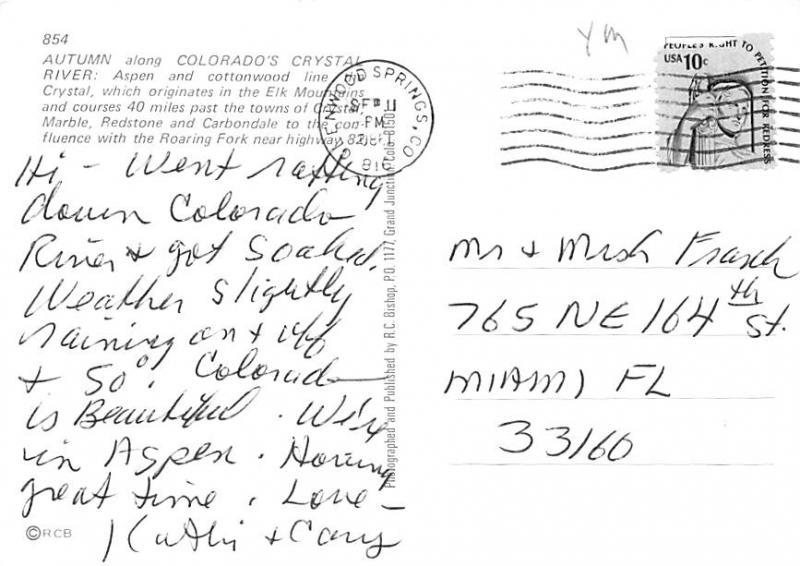 854
AUTUMN along COLORADO'S CRYSTAL
RIVER: Aspen and cottonwood line the
Crystal, which originates in the Elk Mountains
and courses 40 miles past the towns of Crystal,
Marble, Redstone and Carbondale to the con-
fluence with the Roaring Fork near highway 82.
GLENWOOD SPRINGS, CO
SEP 11
PM
816
Ym
PEOPLE'S RIGHT TO PETITION FOR REDRESS
USA 10c
Hi - Went rafting
down Colorado
River + got soaked.
Weather slightly
raining on + off
+ 50°. Colorado
is Beautiful. We're
in Aspen. Having
great time. Love -
Kathi + Cary
Photographed and Published by R.C. Bishop, P.O. 1177, Grand Junction, Colo. 81501
Mr + Mrs Frasch
765 NE 164th St.
MIAMI FL
33160
©RCB